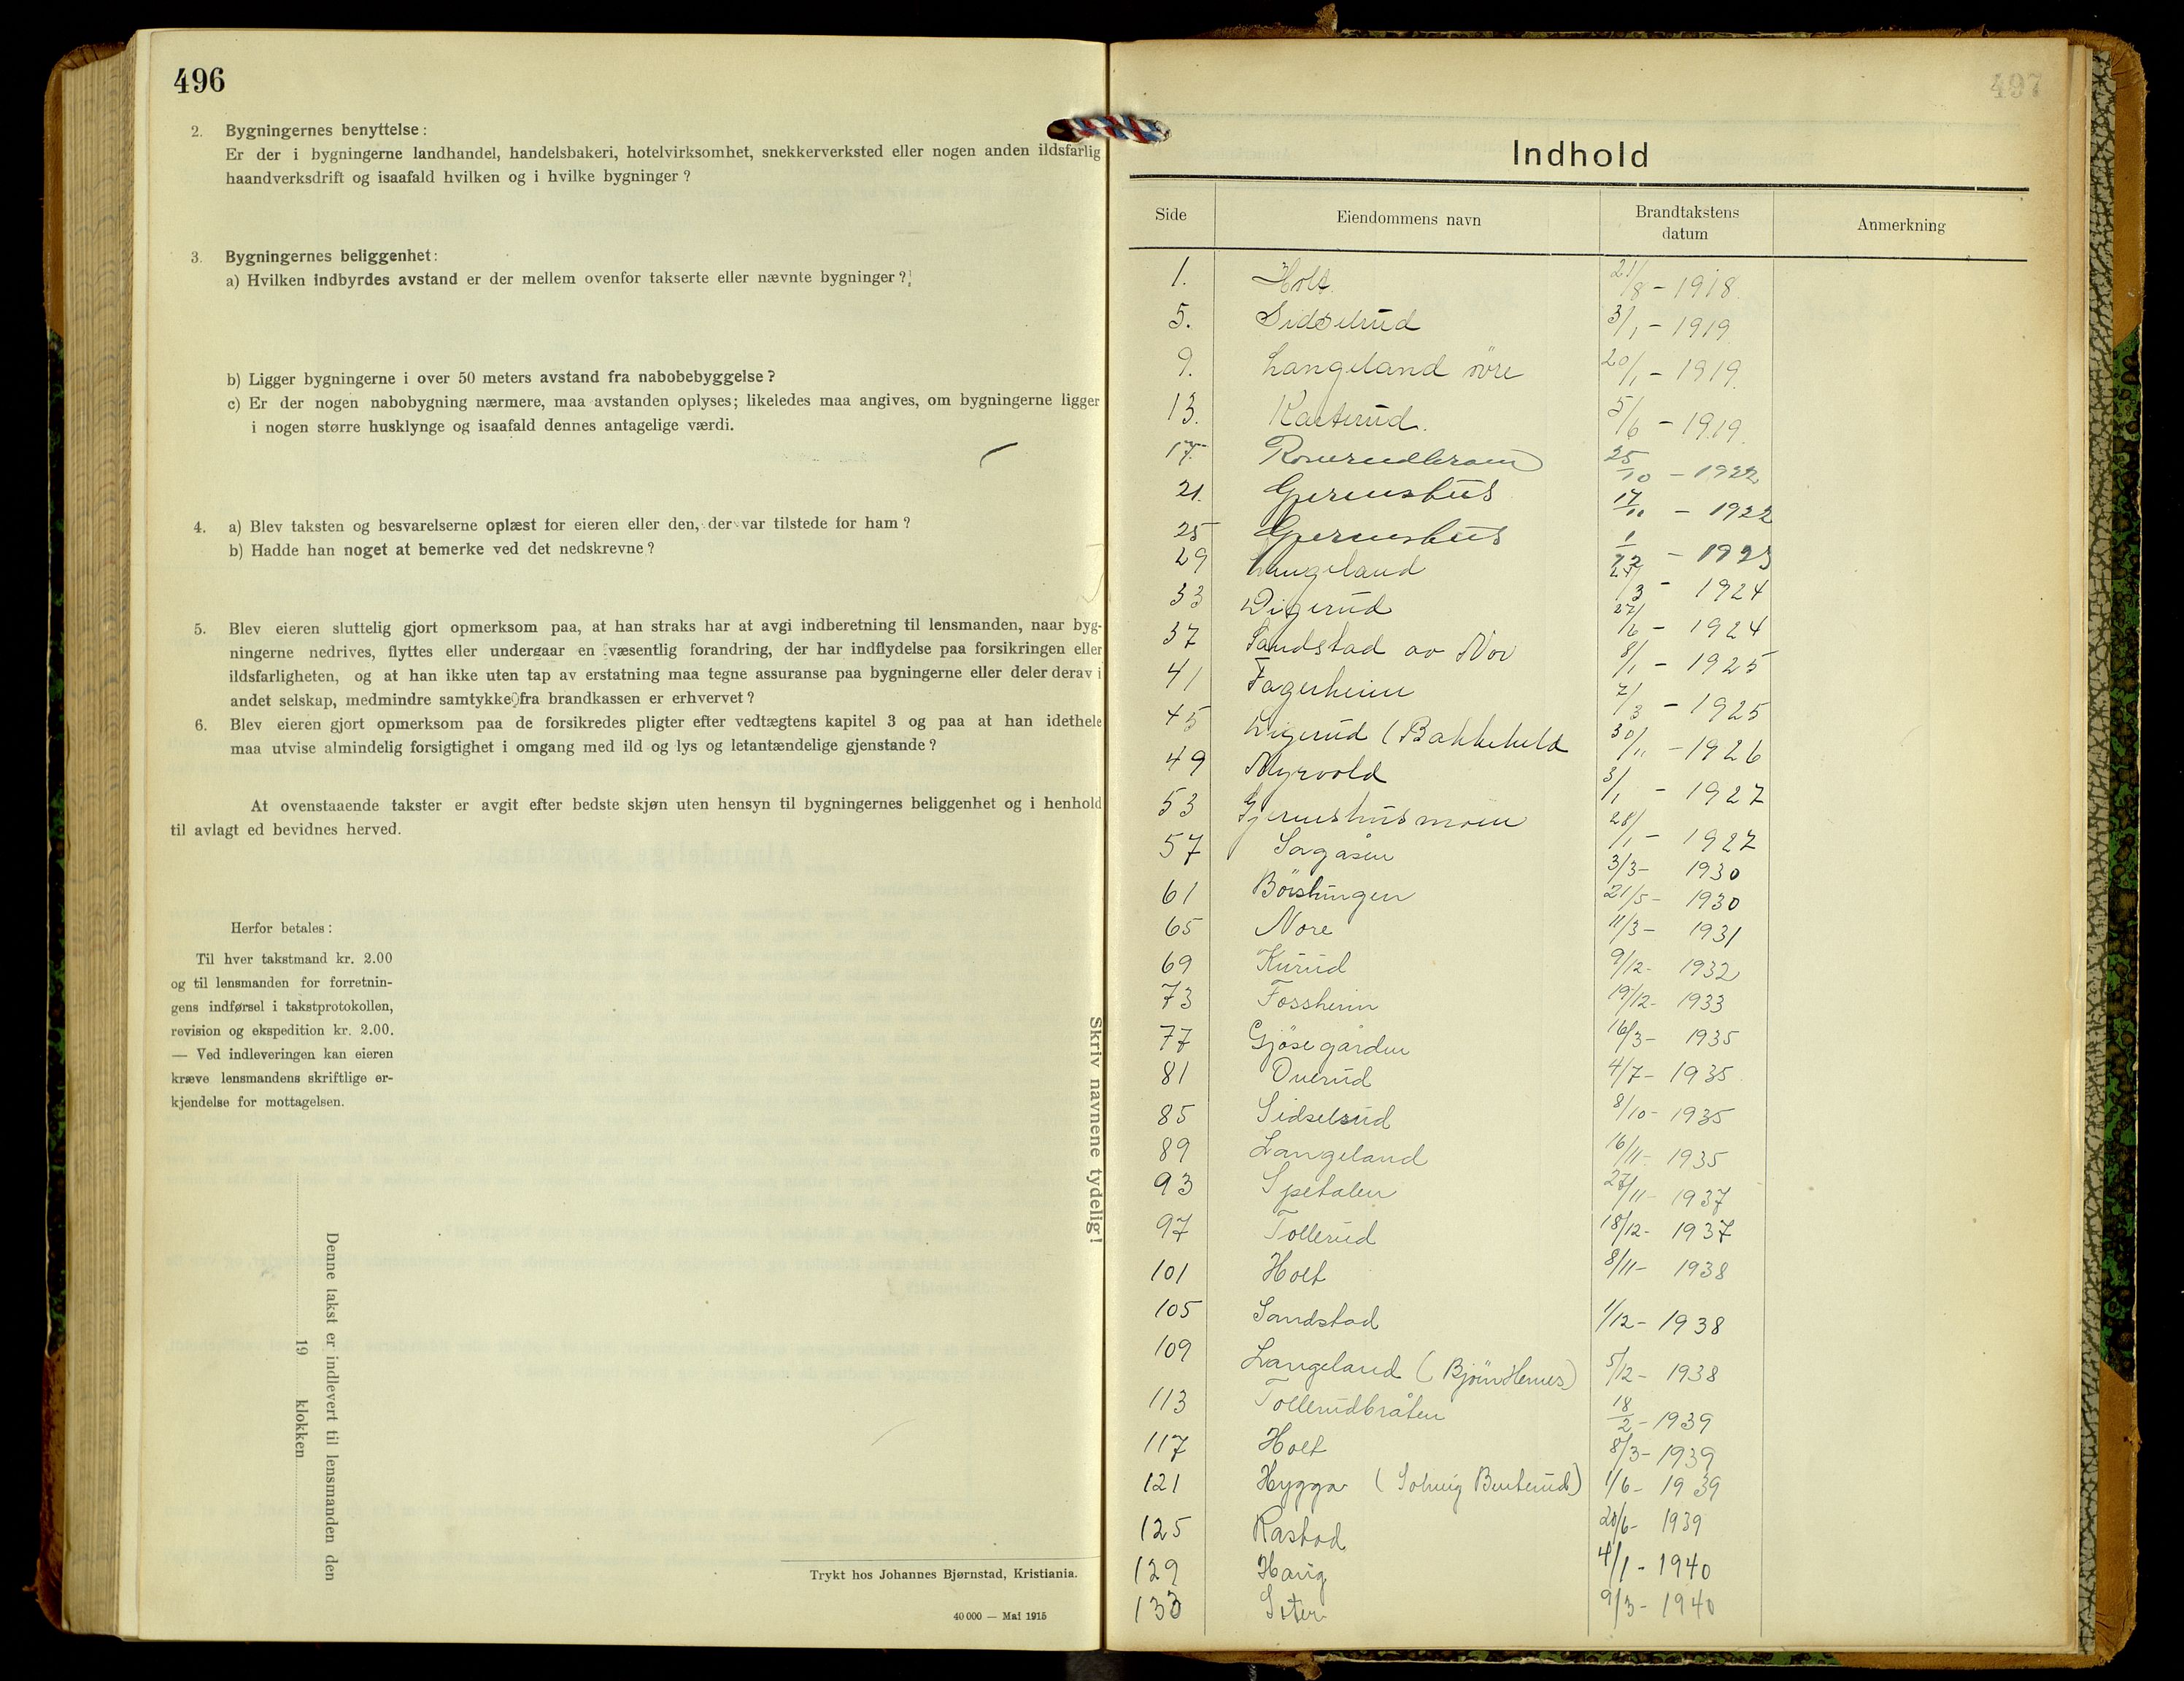 496
2. Bygningernes benyttelse:
Er der i bygningerne landhandel, handelsbakeri, hotelvirksomhet, snekkerverksted eller nogen anden ildsfarlig
haandverksdrift og isaafald hvilken og i hvilke bygninger?
3. Bygningernes beliggenhet:
a) Hvilken indbyrdes avstand er der mellem ovenfor takserte eller nævnte bygninger?
b) Ligger bygningerne i over 50 meters avstand fra nabobebyggelse?
c) Er der nogen nabobygning nærmere, maa avstanden oplyses; likeledes maa angives, om bygningerne ligger
i nogen større husklynge og isaafald dennes antagelige værdi.
4. a) Blev taksten og besvarelserne oplæst for eieren eller den, der var tilstede for ham?
b) Hadde han noget at bemerke ved det nedskrevne?
5. Blev eieren sluttelig gjort opmerksom paa, at han straks har at avgi indberetning til lensmanden, naar byg-
ningerne nedrives, flyttes eller undergaar en væsentlig forandring, der har indflydelse paa forsikringen eller
ildsfarligheten, og at han ikke uten tap av erstatning maa tegne assuranse paa bygningerne eller deler derav i
andet selskap, medmindre samtykke fra brandkassen er erhvervet?
6. Blev eieren gjort opmerksom paa de forsikredes pligter efter vedtægtens kapitel 3 og paa at han idethele
maa utvise almindelig forsigtighet i omgang med ild og lys og letantændelige gjenstande?
At ovenstaaende takster er avgit efter bedste skjøn uten hensyn til bygningernes beliggenhet og i henhold
til avlagt ed bevidnes herved.
Herfor betales:
Til hver takstmand kr. 2.00
og til lensmanden for forretnin-
gens indførsel i takstprotokollen,
revision og ekspedition kr. 2.00.
— Ved indleveringen kan eieren
kræve lensmandens skriftlige er-
kjendelse for mottagelsen.
Denne takst er indlevert til lensmanden den
19 klokken
Skriv navnene tydelig!
Trykt hos Johannes Bjørnstad, Kristiania.
40 000 — Mai 1915
497
Indhold
Side Eiendommens navn Brandtakstens datum Anmerkning
1. Holt. 21/8 - 1918.
5. Sidselrud 3/1 - 1919.
9. Langeland övre 20/1 - 1919.
13. Karterud. 5/6 - 1919.
17. 25/10 - 1922
21. Gjermshus 17/11 - 1922
25 Gjermshus 1923
29 Langeland 24/3 - 1924
33 Digerud 27/6 - 1924
37 Sandstad av Nor 8/1 - 1925
41 Fagerheim 7/3 - 1925
45 Digerud (Bakkeheld 30/11 - 1926
49 Myrvold 3/1 - 1927
53 Gjermshusmoen 28/1 - 1927
57 Sagåsen 3/3 - 1930
61 21/5 - 1930
65 Nore 11/3 - 1931
69 Kurud 9/12 - 1932
73 Fossheim 19/12 - 1933
77 Gjösegården 16/3 - 1935
81 Overud 4/7 - 1935
85 Sidselrud 8/10 - 1935
89 Langeland 16/11 - 1935
93 Spetalen 27/11 - 1937
97 Tollerud 18/12 - 1937
101 Holt 8/11 - 1938
105 Sandstad 1/12 - 1938
109 Langeland (Bjönn Hernes) 5/12 - 1938
113 Tollerudbråten 18/2 - 1939
117 Holt 8/3 - 1939
121 Hygga (Solveig Benterud) 1/6 - 1939
125 Rastad 20/6 - 1939
129 Haug 4/1 - 1940
133 Seter 9/3 - 1940